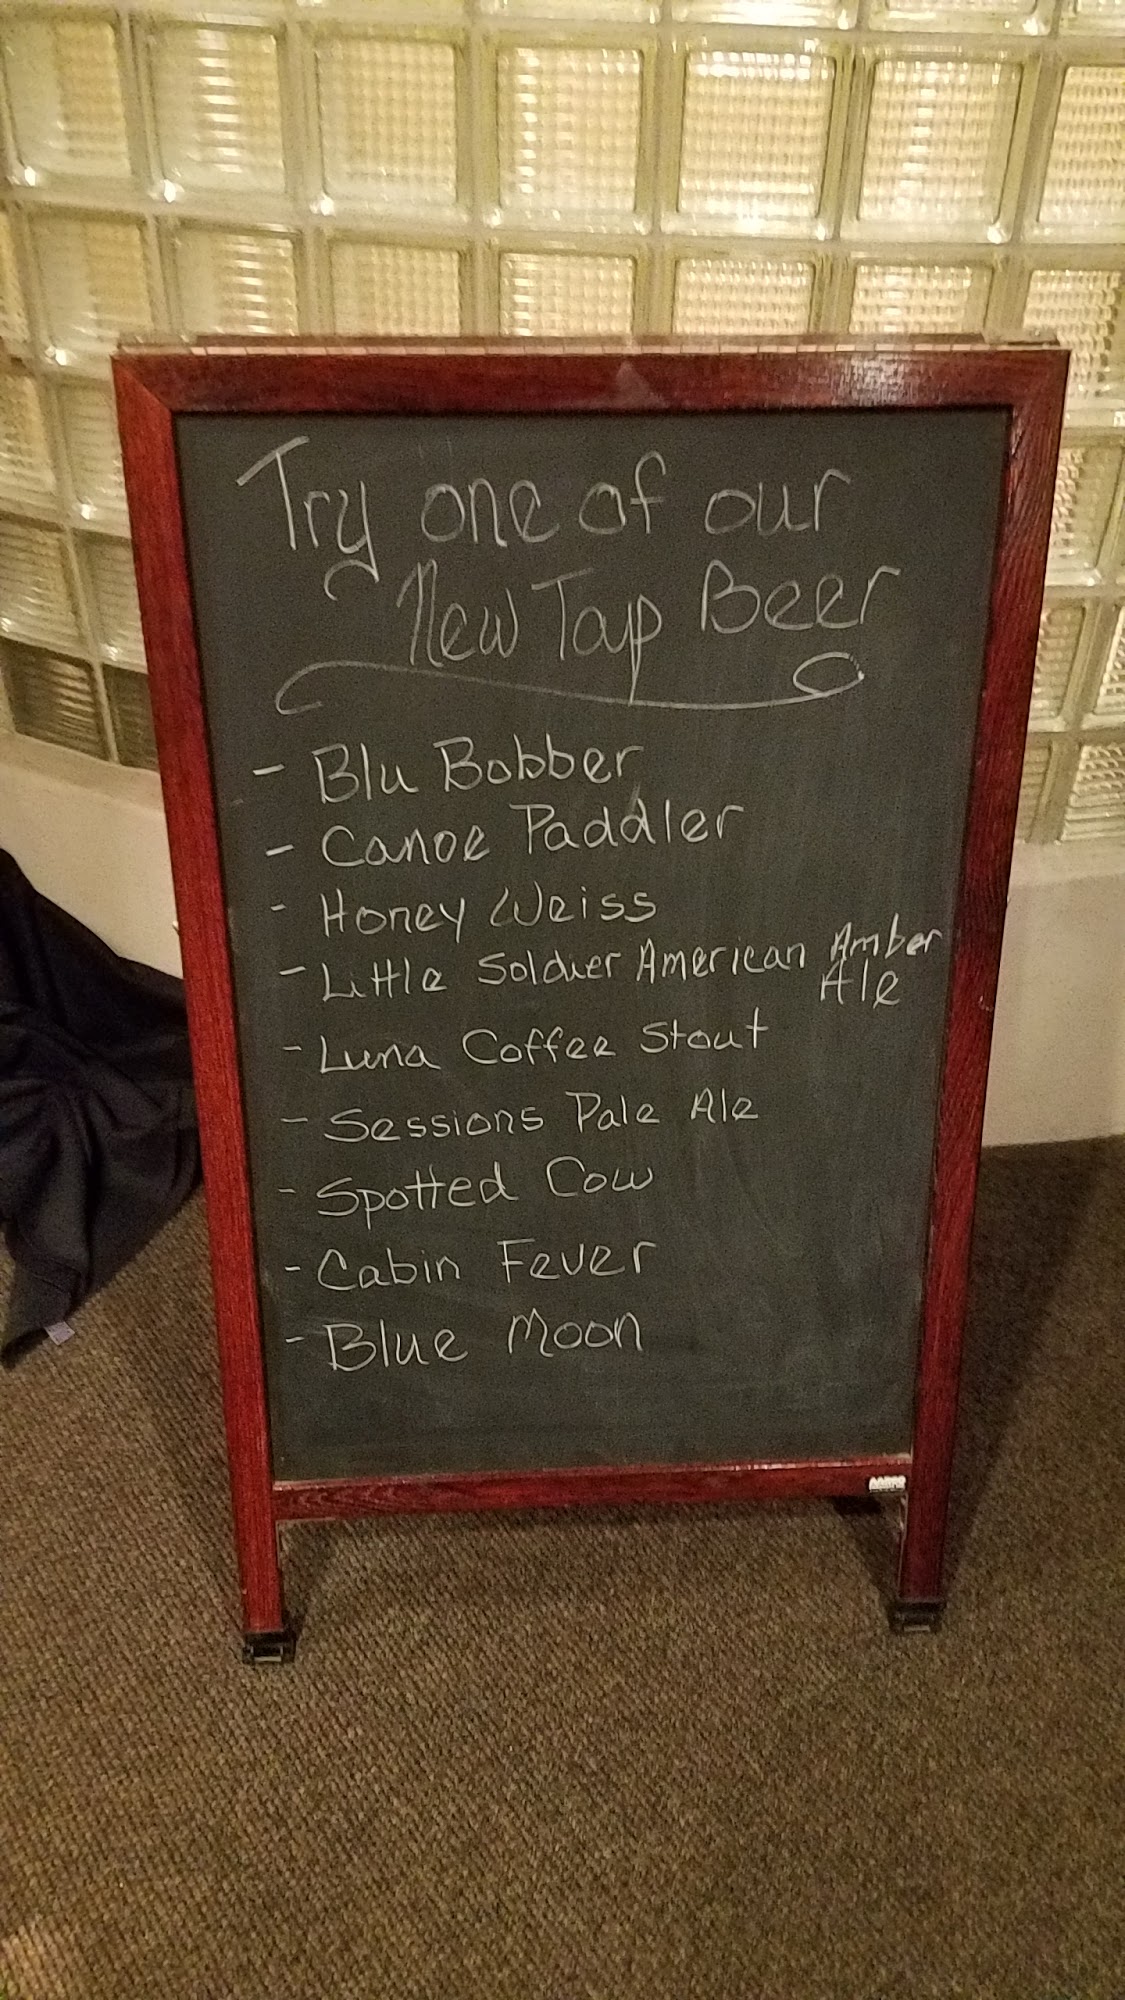 Try one of our
New Tap Beer
- Blu Bobber
- Canoe Paddler
- Honey Weiss
- Little Soldier American Amber
Ale
- Luna Coffee Stout
- Sessions Pale Ale
- Spotted Cow
- Cabin Fever
- Blue Moon